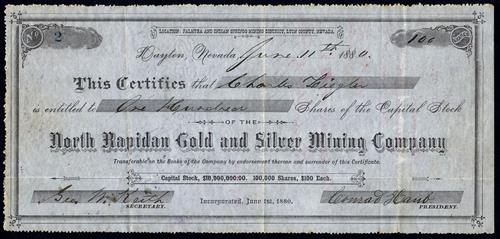 LOCATION: PALMYRA AND INDIAN SPRINGS MINING DISTRICT, LYON COUNTY, NEVADA.
No. 2
100
Dayton, Nevada, June 11th 1880.
This Certifies that Charles Ziegler
is entitled to One Hundred Shares of the Capital Stock
OF THE
North Rapidan Gold and Silver Mining Company
Transferable on the Books of the Company by endorsement thereon and surrender of this Certificate.
Capital Stock, $10,000,000.00. 100,000 Shares, $100 Each.
Geo. W. Keith
SECRETARY.
Incorporated, June 1st, 1880.
Conrad Haub
PRESIDENT.